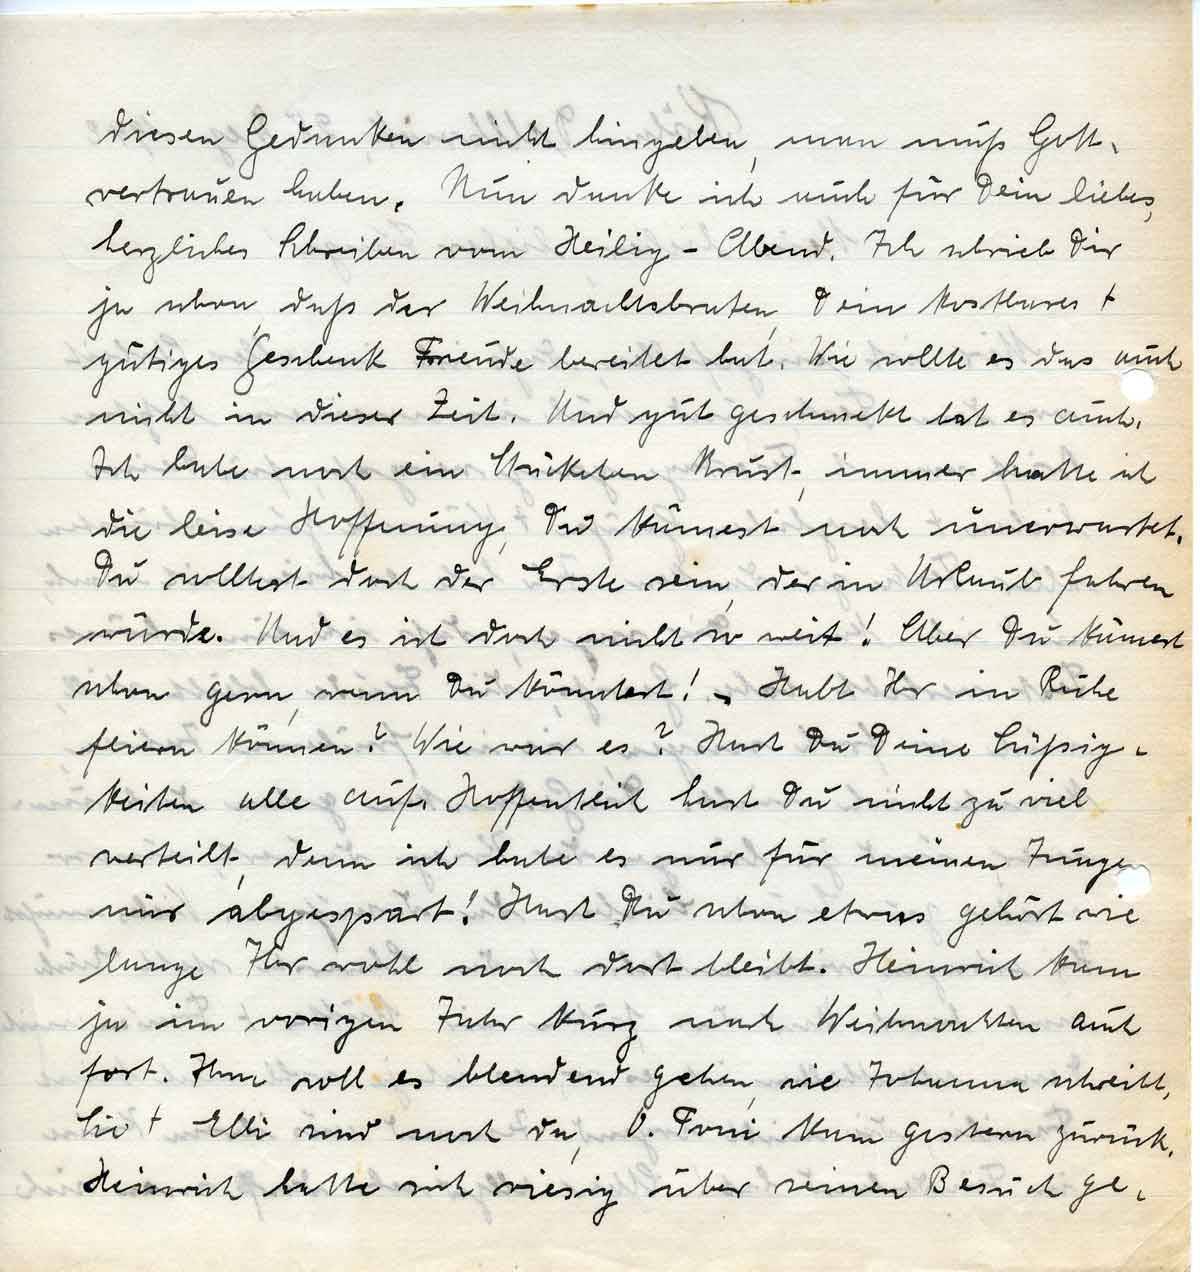 diesen Gedanken nicht hingeben, man muß Gott-
vertrauen haben. Nun danke ich auch für Dein liebes,
herzliches Schreiben vom Heilig-Abend. Ich schrieb Dir
ja schon, daß der Weihnachtsbraten, Dein kostbares +
gütiges Geschenk Freude bereitet hat. Wie sollte es das auch
nicht in dieser Zeit. Und gut geschmeckt hat es auch.
Ich habe noch ein Stückchen Brust, immer hatte ich
die leise Hoffnung, Du kämest noch unerwartet.
Du solltest doch der Erste sein, der in Urlaub fahren
würde. Und es ist doch nicht so weit! Aber Du kämest
schon gern, wenn Du könntest! - Habt Ihr in Ruhe
feiern können? Wie war es? Hast Du Deine Süßig-
keiten alle auf. Hoffentlich hast Du nicht zu viel
verteilt, denn ich habe es nur für meinen Jungen
mir abgespart! Hast Du schon etwas gehört wie
lange Ihr wohl noch dort bleibt. Heinrich kam
ja im vorigen Jahr kurz nach Weihnachten auch
fort. Ihm soll es blendend gehen, wie Johanna schreibt.
Sie + Elli sind noch da, O. Toni kam gestern zurück.
Heinrich hatte sich riesig über seinen Besuch ge-